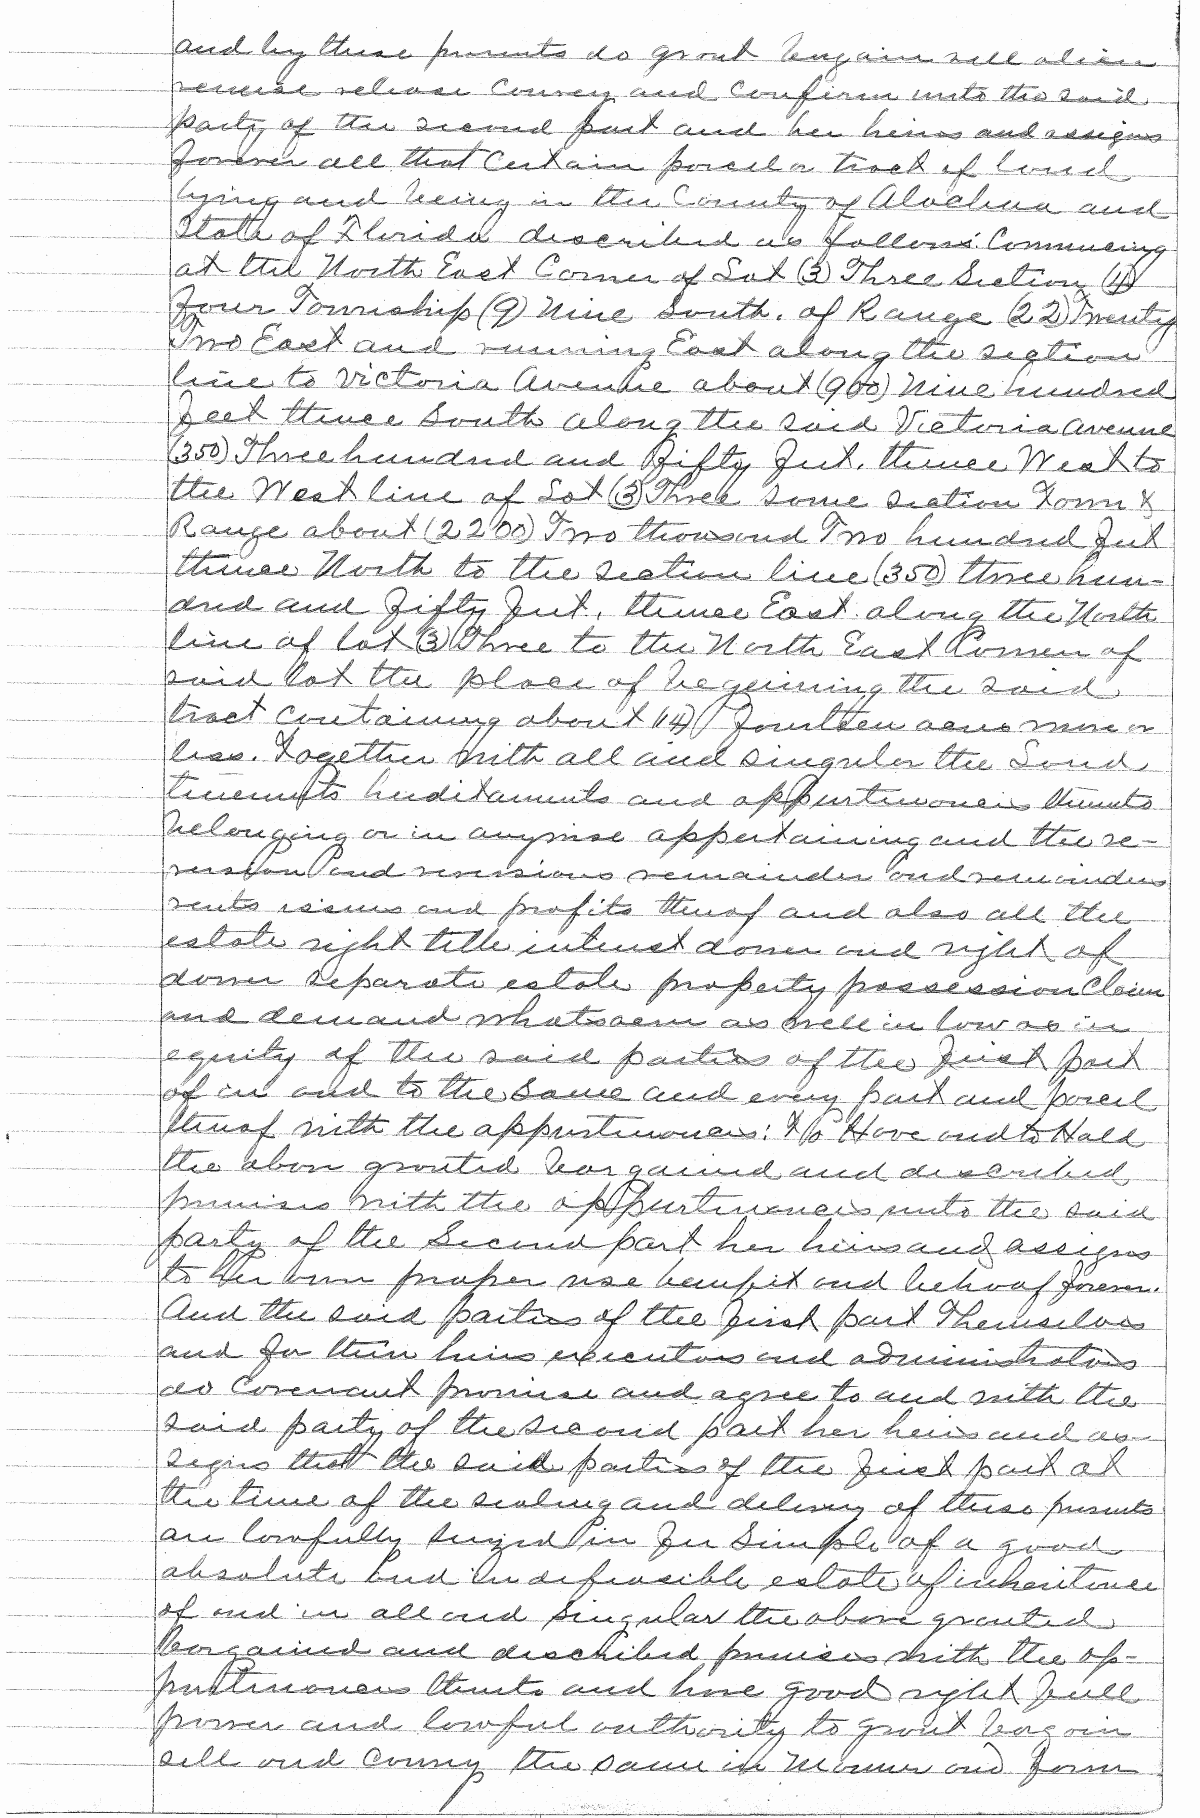 and by these presents do grant bargain sell alien
remise release convey and confirm unto the said
party of the second part and her heirs and assigns
forever all that certain parcel or tract of land
lying and being in the County of Alachua and
State of Florida described as follows: Commencing
at the North East Corner of Lot (3) Three Section (4)
Four Township (9) Nine South. of Range (22) Twenty
Two East and running East along the section
line to Victoria Avenue about (900) Nine hundred
feet thence South along the said Victoria Avenue
(350) Three hundred and Fifty feet, thence West to
the West line of Lot (3) Three same section Town &
Range about (2200) Two thousand Two hundred feet
thence North to the section line (350) three hun-
dred and Fifty feet, thence East along the North
line of lot (3) Three to the North East Corner of
said lot the place of beginning the said
tract containing about (14) Fourteen acres more or
less. Together with all and singular the Land
tenements hereditaments and appurtenances thereto
belonging or in anywise appertaining and the re-
version and reversions remainder and remainders
rents issues and profits thereof and also all the
estate right title interest dower and right of
dower separate estate property possession Claim
and demand whatsoever as well in law as in
equity of the said parties of the first part
of in and to the same and every part and parcel
thereof with the appurtenances: To Have and to Hold
the above granted bargained and described
premises with the appurtenances unto the said
party of the Second part her heirs and assigns
to her own proper use benefit and behoof forever.
And the said parties of the first part Themselves
and for their heirs executors and administrators
do Covenant promise and agree to and with the
said party of the second part her heirs and as-
signs that the said parties of the first part at
the time of the sealing and delivery of these presents
are lawfully seized in Fee Simple of a good
absolute and indefeasible estate of inheritence
of and in all and singular the above granted
bargained and described premises with the ap-
purtenances thereto and have good right full
power and lawful authority to grant bargain
sell and convey the same in Manner and form